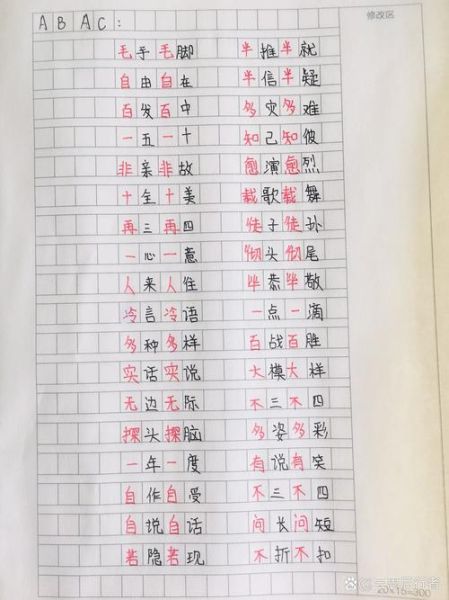 ABAC:
毛手毛脚 半推半就
自由自在 半信半疑
百发百中 多灾多难
一五一十 知己知彼
非亲非故 愈演愈烈
十全十美 载歌载舞
再三再四 徒子徒孙
一心一意 彻头彻尾
人来人往 毕恭毕敬
冷言冷语 一点一滴
多种多样 百战百胜
实话实说 大模大样
无边无际 不三不四
探头探脑 多姿多彩
一年一度 有说有笑
自作自受 不三不四
自说自话 问长问短
若隐若现 不折不扣
修改区
20×16=300